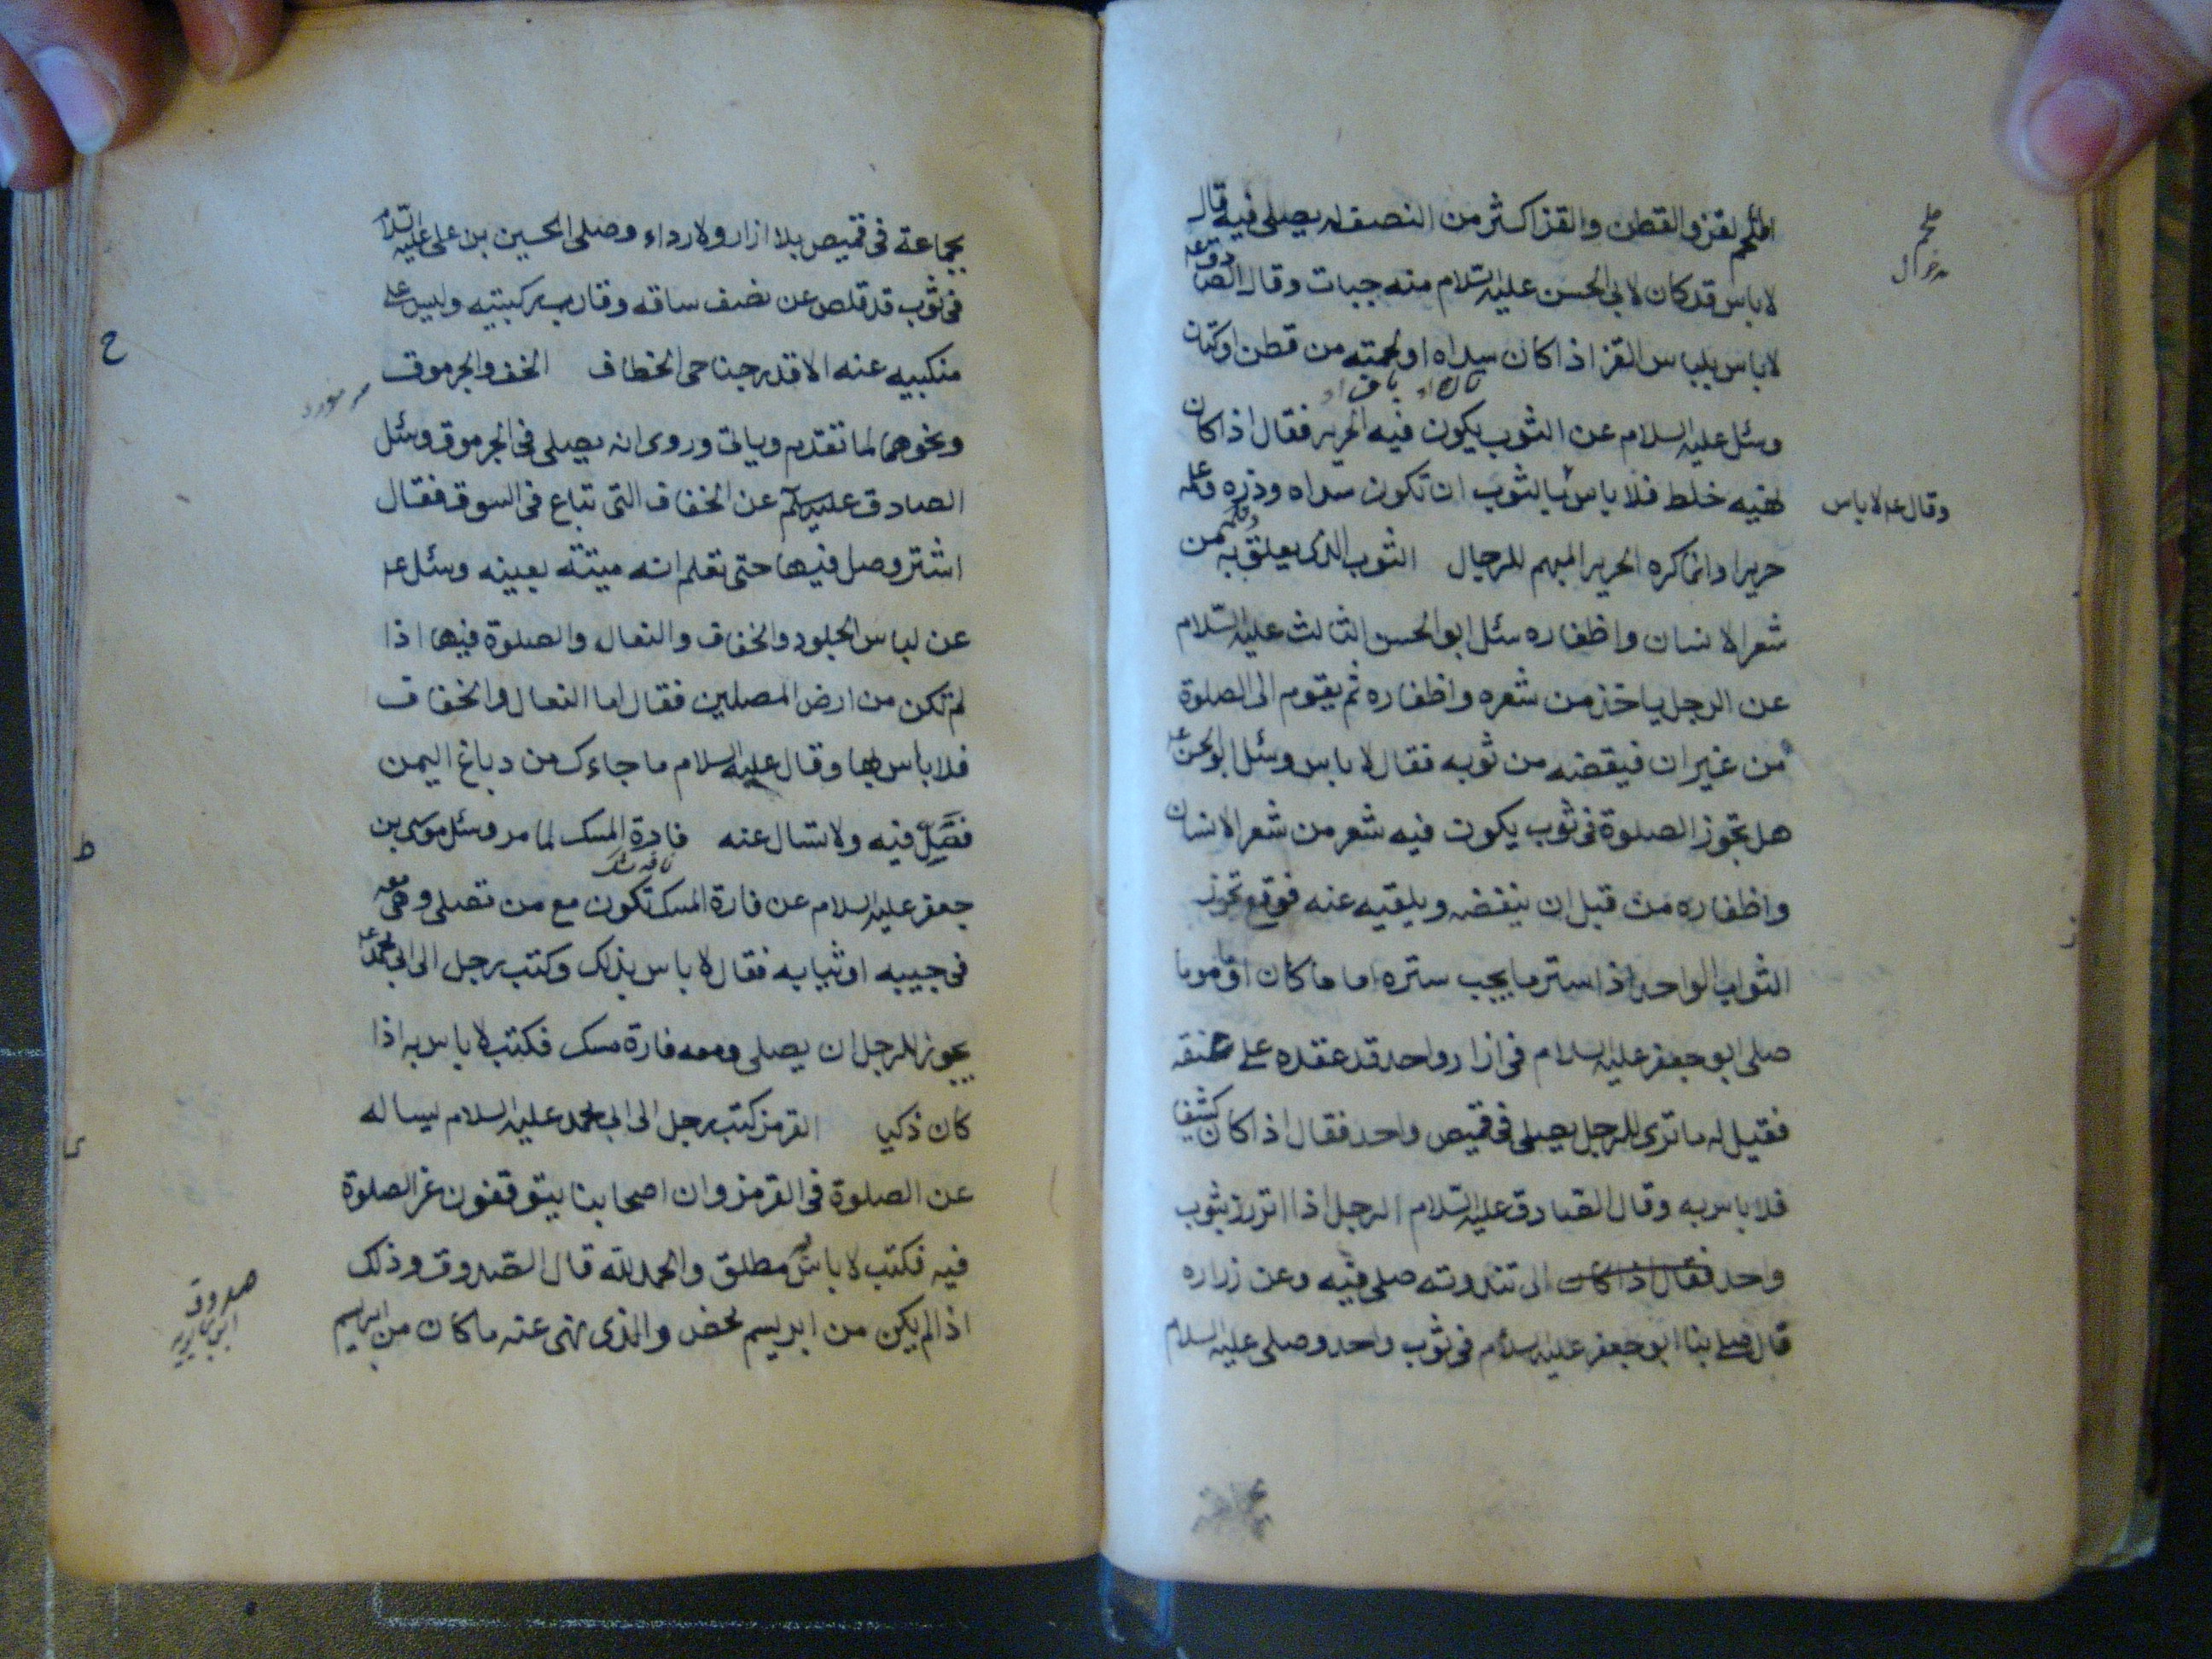 الملحم بقز والقطن والقز اكثر من النصف له يصلى فيه قال
لا باس قد كان لابى الحسن عليه السلام منه جبات وقال الصادق ع
لا باس بلباس القز اذا كان سداه او لحمته من قطن او كتان
وسئل عليه السلام عن الثوب يكون فيه الحرير فقال اذا كان
فيه خلط فلا باس بالثوب ان تكون سداه وذره وعلمه
حريرا وانما كره الحرير المبهم للرجال الثوب الذى يعلق به من
شعر الانسان واظفاره سئل ابو الحسن الثالث عليه السلام
عن الرجل ياخذ من شعره واظفاره ثم يقوم الى الصلوة
من غير ان فيقضه من ثوبه فقال لا باس وسئل ابو الحسن ع
هل تجوز الصلوة فى ثوب يكون فيه شعر من شعر الانسان
واظفاره من قبل ان ينفضه ويلقيه عنه فوقع تجوز
الثواب الواحد اذا ستر ما يجب ستره اما ما كان او ماموما
صلى ابو جعفر عليه السلام فى ازار واحد قد عقده على عنقه
فقيل له ما ترى للرجل يصلى فى قميص واحد فقال اذا كان كثيفا
فلا باس به وقال الصادق عليه السلام الرجل اذا اتزر بثوب
واحد فقال اذا كان الى تندوته صلى فيه وعن زراره
قال صلى بنا ابو جعفر عليه السلام فى ثوب واحد وصلى عليه السلام
ملحم
وقال ع لا باس
بجماعة فى قميص بلا ازار ولا رداء وصلى الحسين بن على عليه السلام
فى ثوب قد قلص عن نصف ساقه وقارب ركبتيه وليس على
منكبيه عنه الا قدر جناحى الخطاف الخف والجرموق
ونحوهما لما تقدم وياتى وروى انه يصلى فى الجرموق وسئل
الصادق عليه السلم عن الخفاف التى تباع فى السوق فقال
اشتر وصل فيها حتى تعلم انه ميتته بعينه وسئل ع
عن لباس الجلود والخفاف والنعال والصلوة فيها اذا
لم تكن من ارض المصلين فقال اما النعال والخفاف
فلا باس بها وقال عليه السلام ما جاءك من دباغ اليمن
فصل فيه ولا تسال عنه فارة المسك لما مر وسئل موسى بن
نافه مشك
جعفر عليه السلام عن فارة المسك تكون مع من تصلى وهى معه
فى جيبه او ثيابه فقال لا باس بذلك وكتب رجل الى ابى محمد ع
يجوز للرجل ان يصلى ومعه فارة مسك فكتب لا باس به اذا
كان ذكيا القرمز كتب رجل الى ابى محمد عليه السلام يساله
عن الصلوة فى القرمز وان اصحابنا يتوقفون عن الصلوة
فيه فكتب لا باس به مطلق والحمد لله قال الصدوق وذلك
اذا لم يكن من ابريسم محض والذى نهى عنه ما كان من ابريسم
ح
ط
ى
صدوق
ابن بابويه